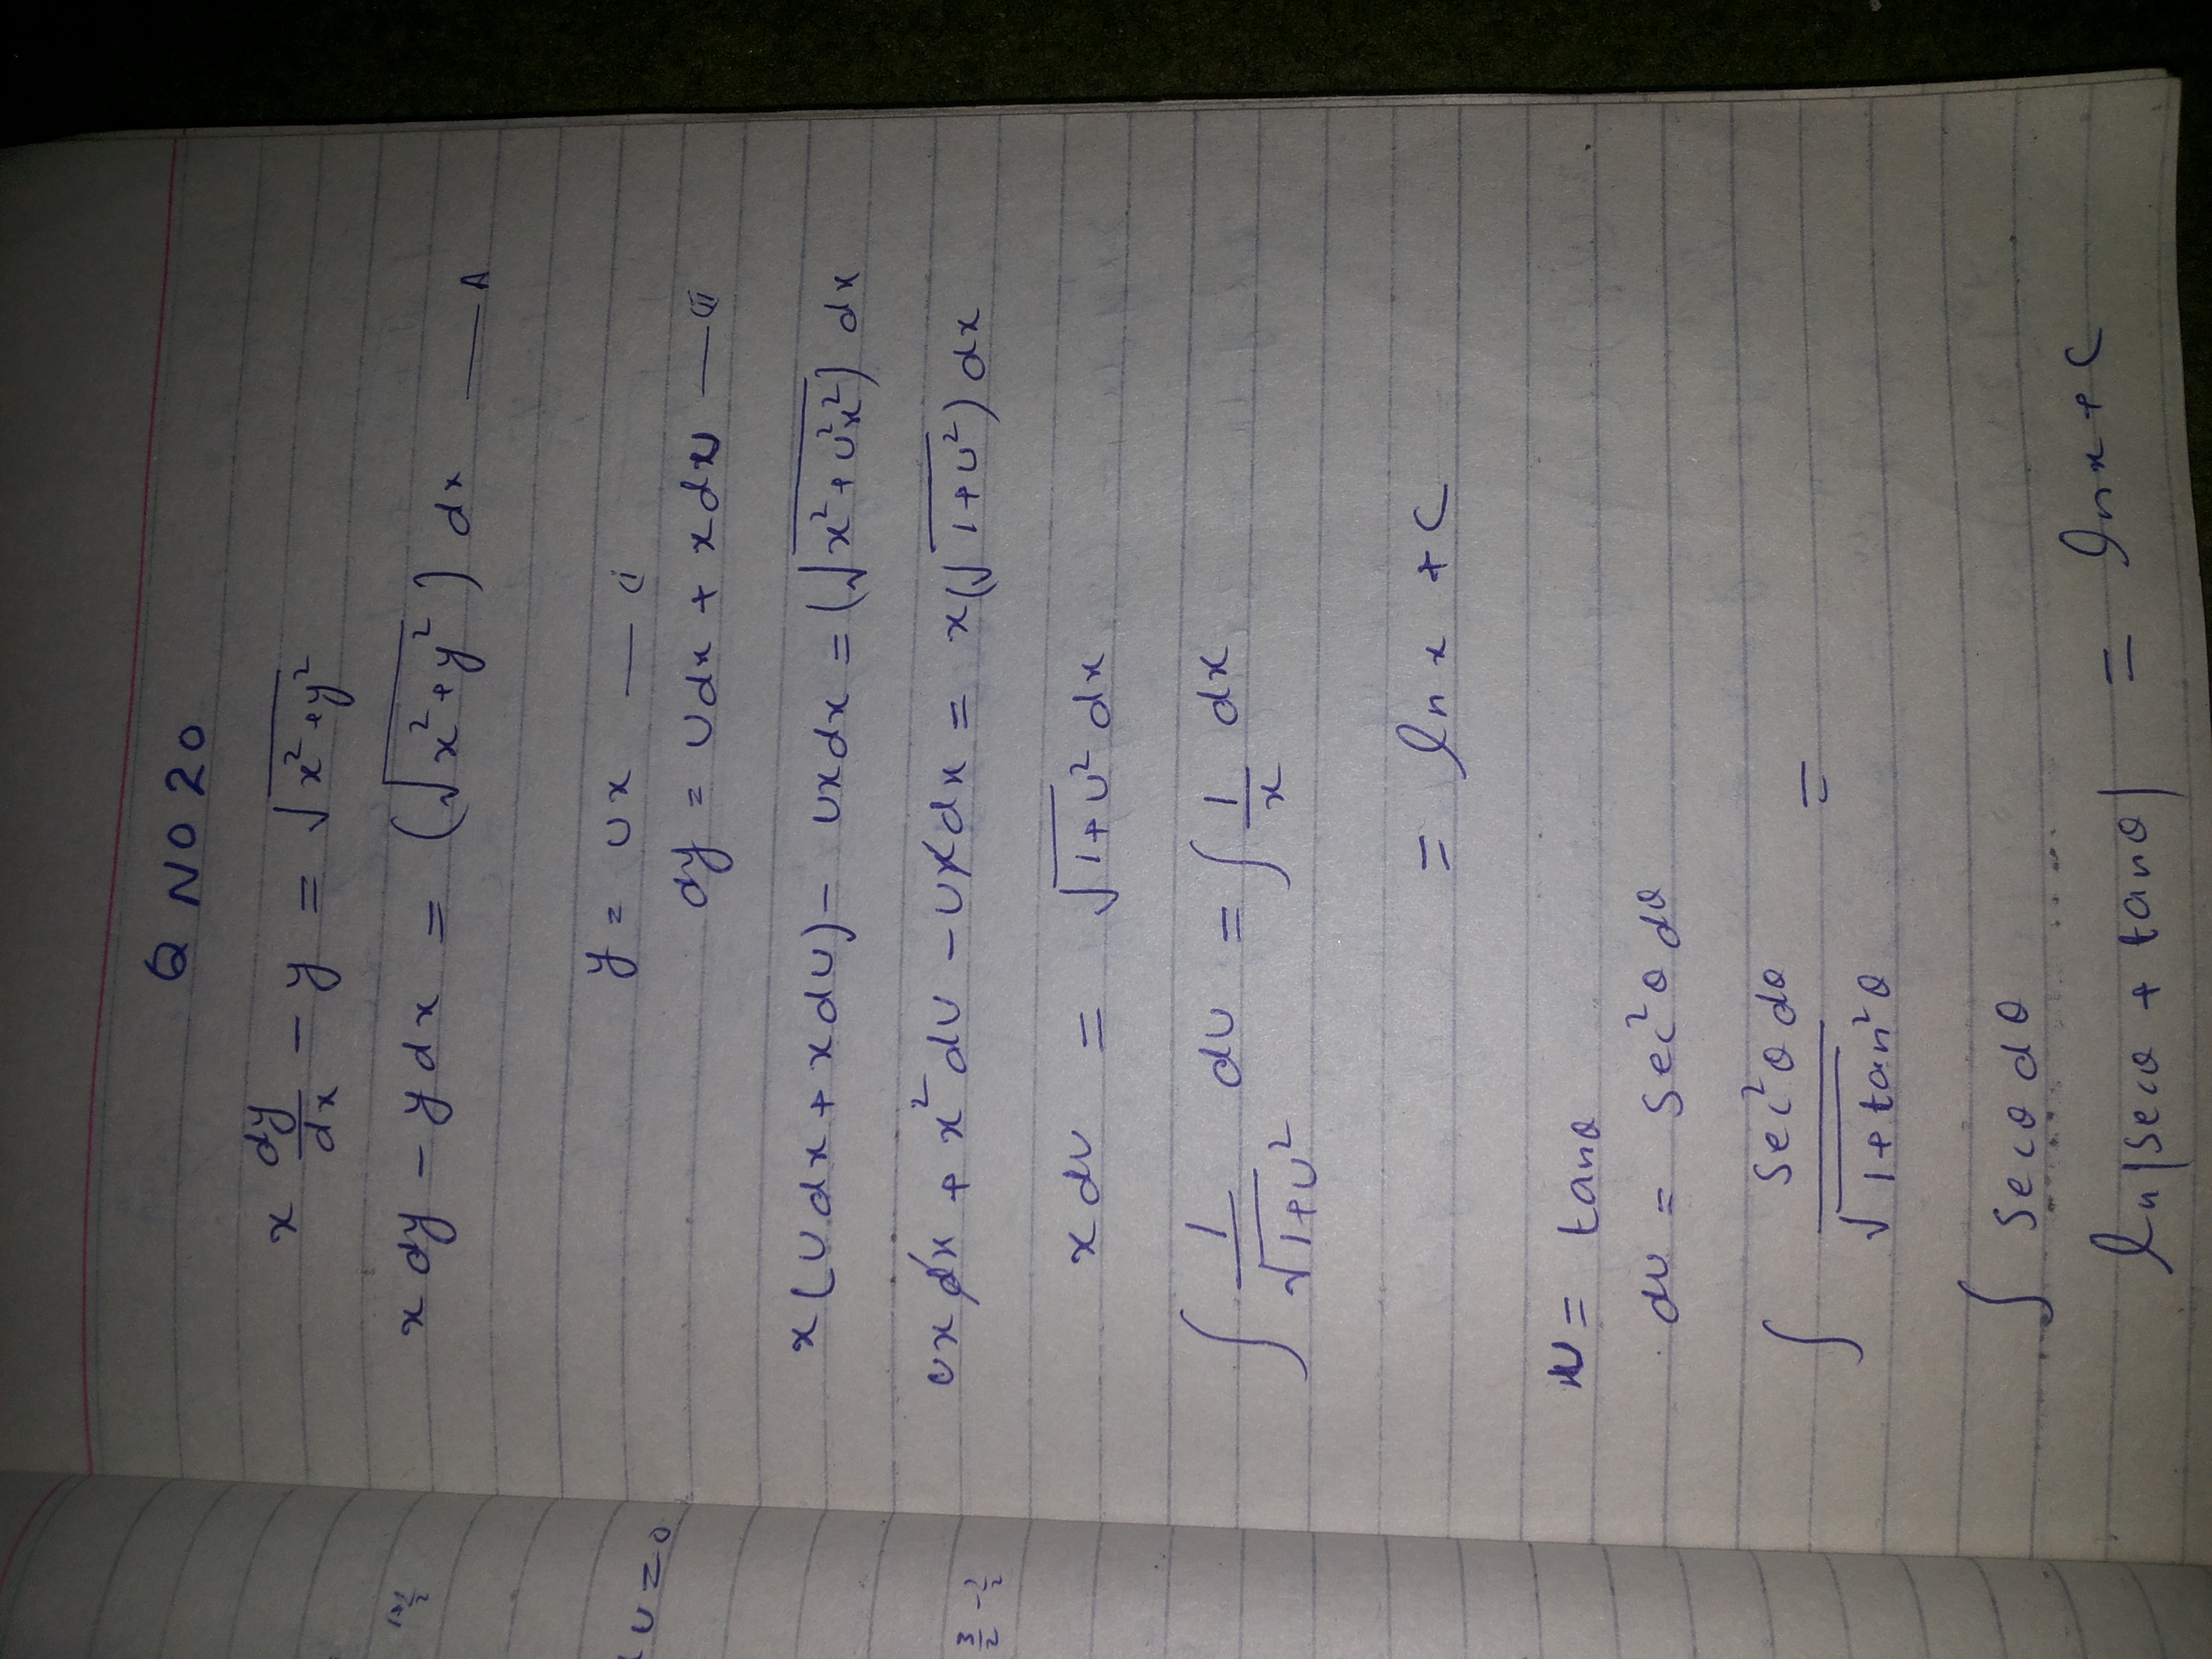 Q NO 20
x dy/dx - y = √(x² + y²)
x dy - y dx = (√(x² + y²)) dx — A
y = ux — (i
dy = u dx + x du — (ii
x(u dx + x du) - ux dx = (√(x² + u²x²)) dx
ux dx + x² du - ux dx = x(√(1 + u²)) dx
x du = √(1 + u²) dx
∫ 1/√(1 + u²) du = ∫ 1/x dx
= ln x + c
u = tanθ
du = sec²θ dθ
∫ sec²θ dθ / √(1 + tan²θ) =
∫ secθ dθ
ln|secθ + tanθ| = ln x + c
u = 0